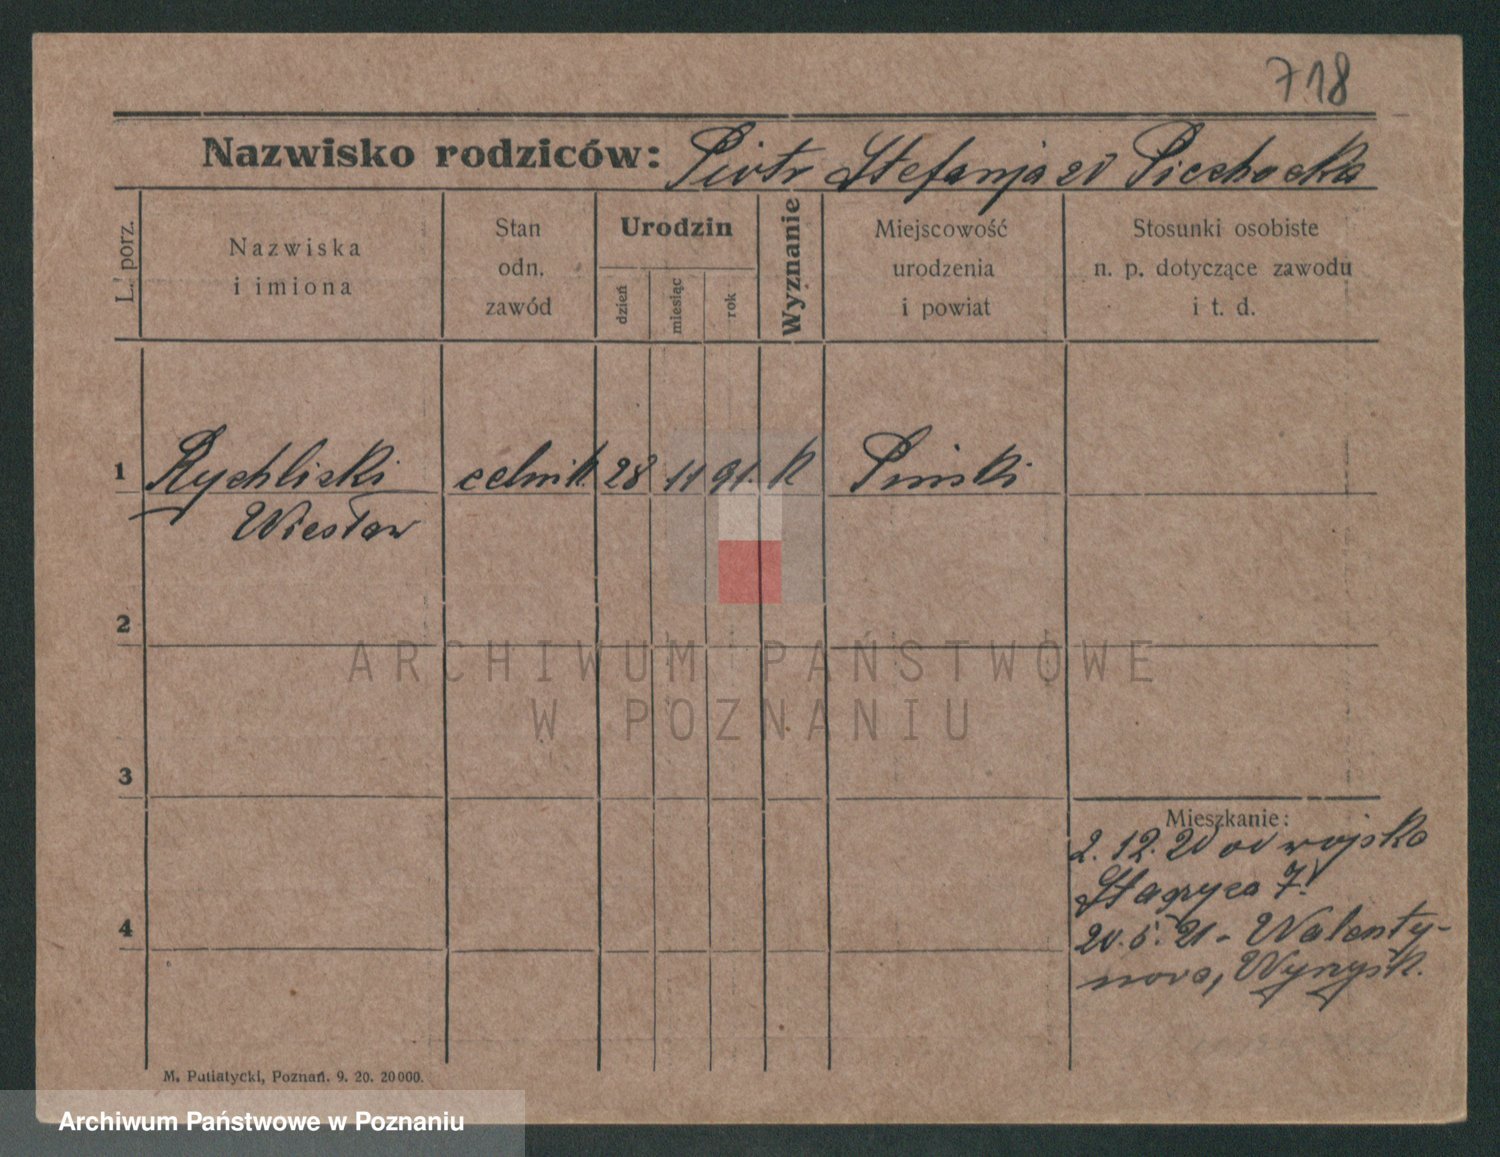 718
Nazwisko rodziców: Piotr Stefanja zd Piechocka
L. porz.
Nazwiska
i imiona
Stan
odn.
zawód
Urodzin
dzień
miesiąc
rok
Wyznanie
Miejscowość
urodzenia
i powiat
Stosunki osobiste
n. p. dotyczące zawodu
i t. d.
1 Rychliski celnik. 28 11 91. k
Wiesław
2
3
4
Mieszkanie:
2. 12. 20 od wojska
7.
20. 5. 21 - Walenty-
nowo, Wyrzysk.
M. Putiatycki, Poznań. 9. 20. 20000.
ARCHIWUM PAŃSTWOWE
W POZNANIU
Archiwum Państwowe w Poznaniu